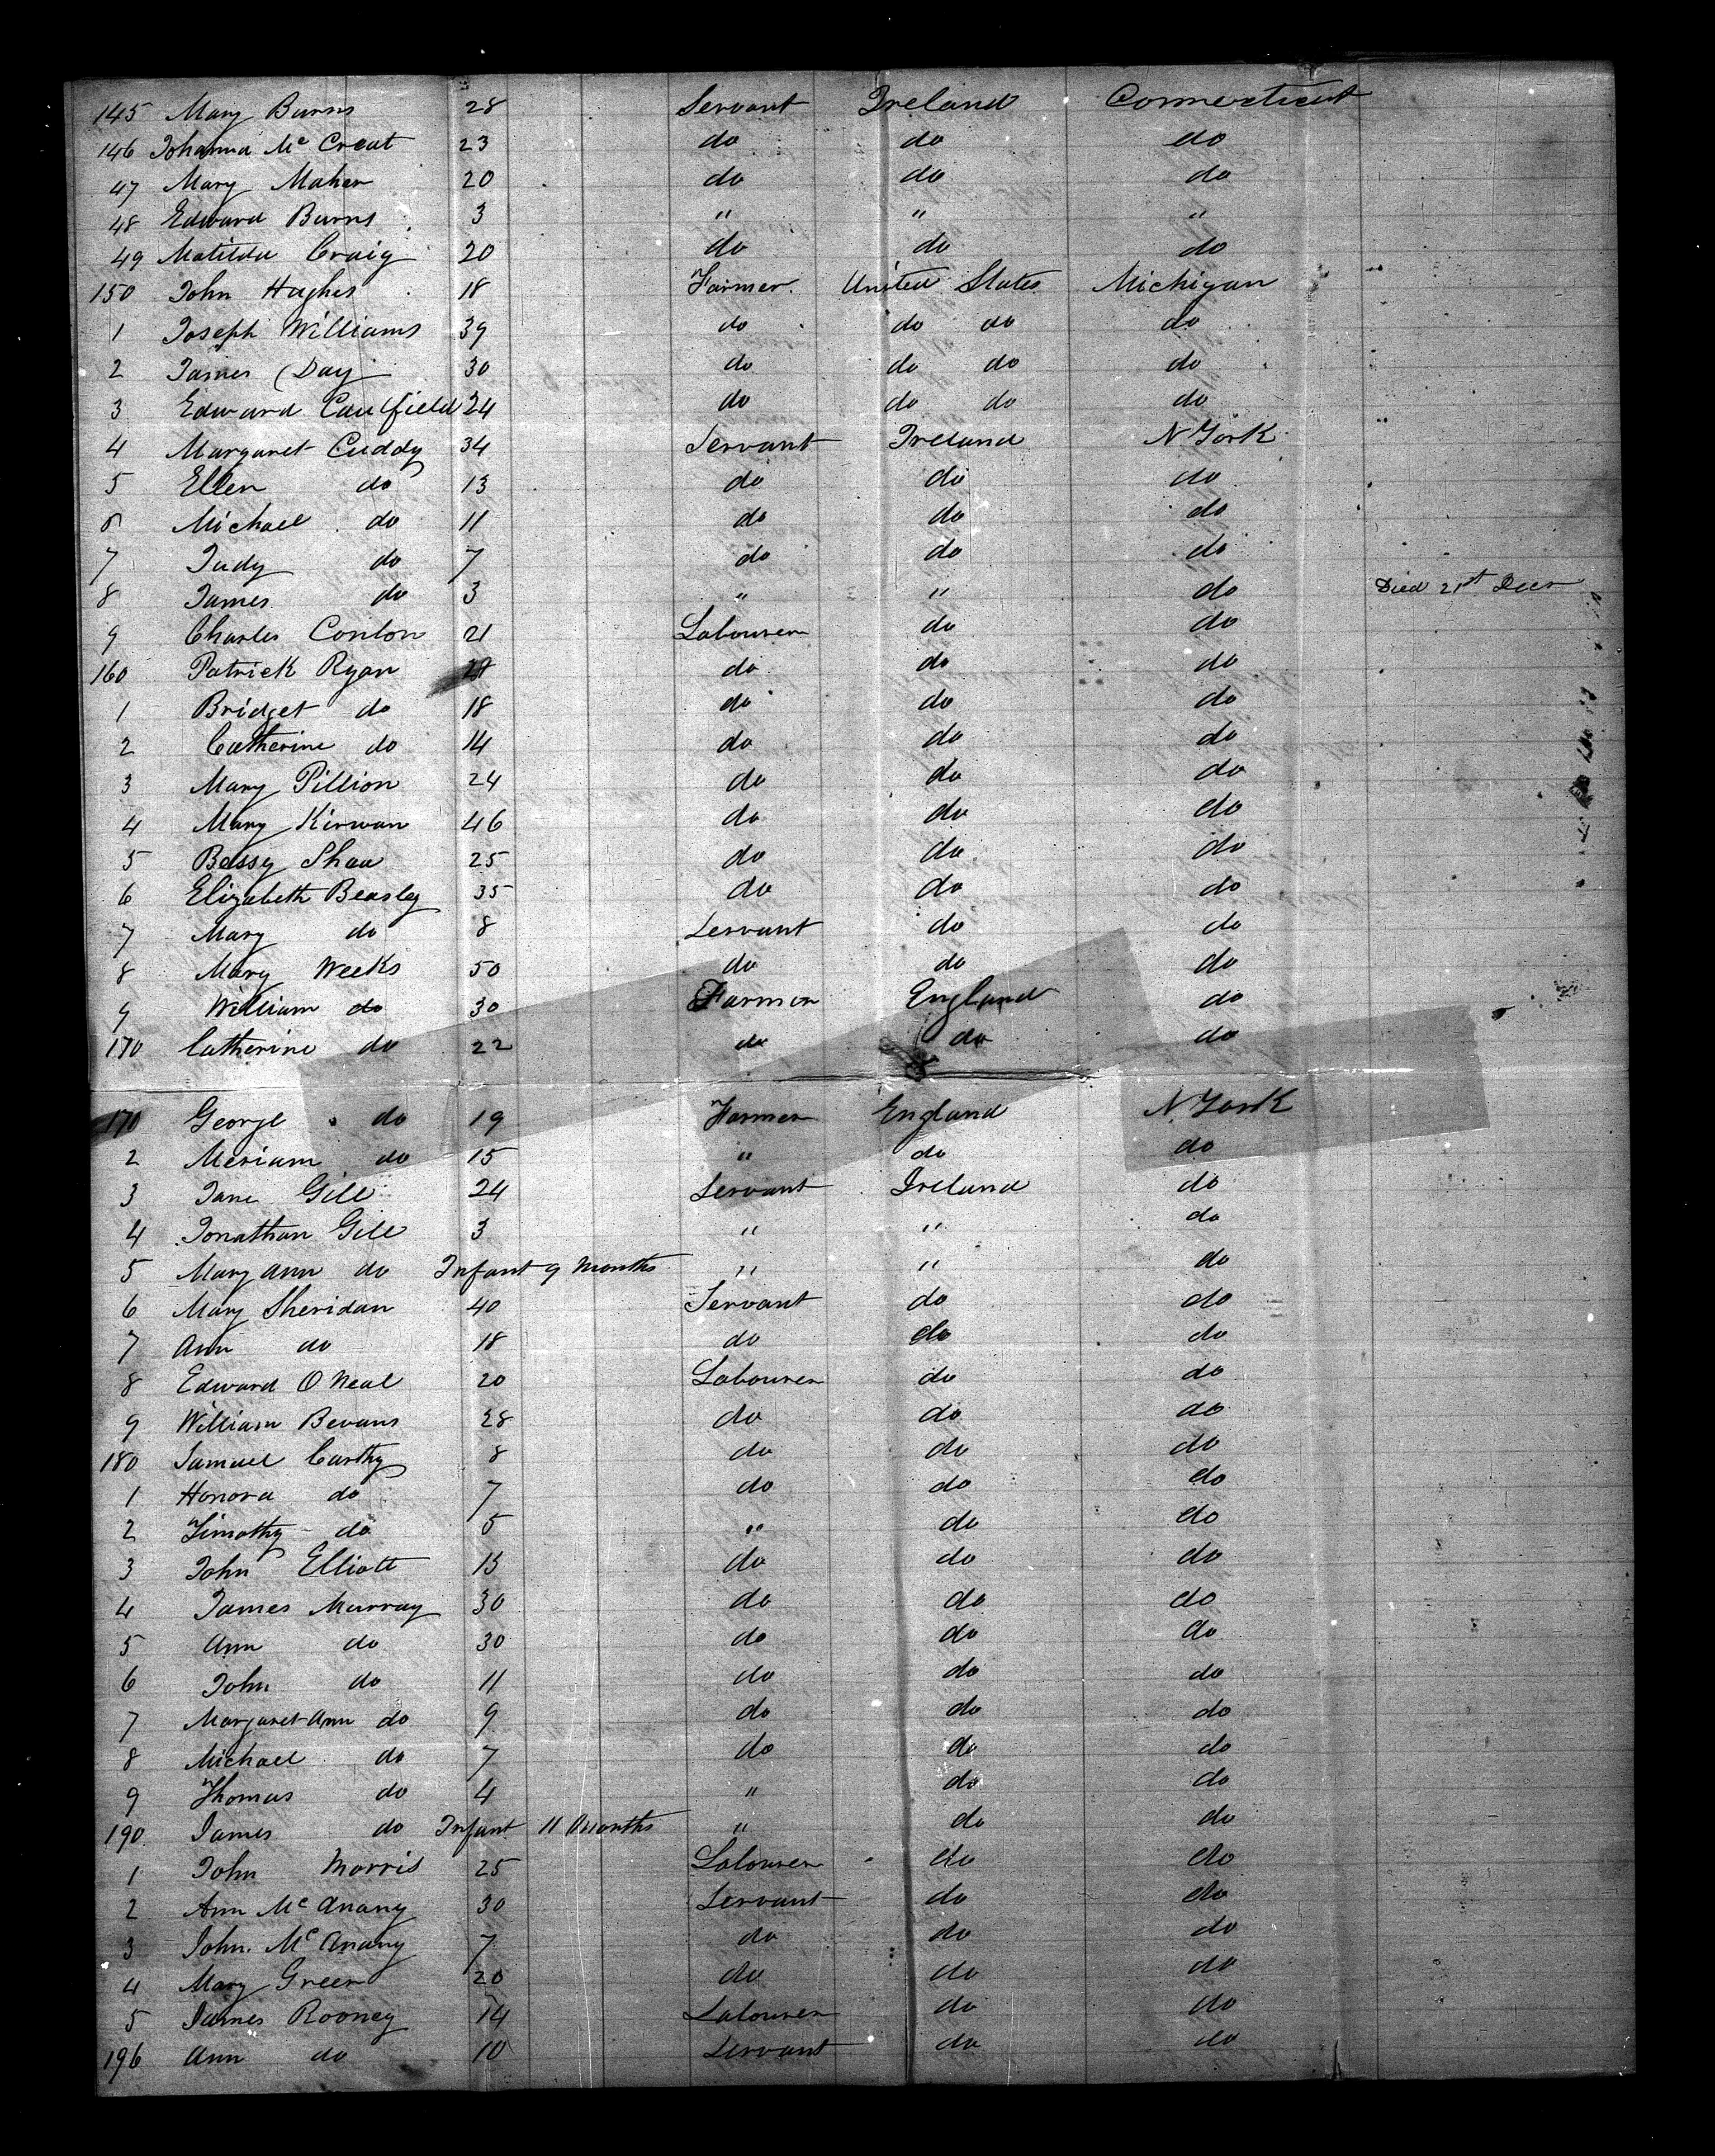 145 Mary Burns 28 Servant Ireland Connecticut
146 Johanna Mc Creat 23 do do do
47 Mary Maher 20 do do do
48 Edward Burns 3 " " "
49 Matilda Craig 20 do do do
150 John Hughes 18 Farmer United States Michigan
1 Joseph Williams 39 do do do do
2 James Day 30 do do do do
3 Edward Caulfield 24 do do do do
4 Margaret Cuddy 34 Servant Ireland N York
5 Ellen do 13 do do do
6 Michael do 11 do do do
7 Judy do 7 do do do
8 James do 3 " " do Died 21st Decr
9 Charles Conlon 21 Labourer do do
160 Patrick Ryan do do do
1 Bridget do 18 do do do
2 Catherine do 14 do do do
3 Mary Pillion 24 do do do
4 Mary Kirwan 46 do do do
5 Bessy Shaa 25 do do do
6 Elizabeth Beasley 35 do do do
7 Mary do 8 Servant do do
8 Mary Weeks 50 do do do
9 William do 30 Farmer England do
170 Catherine do 22 do do do
170 George do 19 Farmer England N York
2 Meriam do 15 " do do
3 Jane Gill 24 Servant Ireland do
4 Jonathan Gill 3 " " do
5 Mary Ann do Infant 9 Months " " do
6 Mary Sheridan 40 Servant do do
7 Ann do 18 do do do
8 Edward O Neal 20 Labourer do do
9 William Bevans 28 do do do
180 Samuel Carthy 8 do do do
1 Honora do 7 do do do
2 Timothy do 5 " do do
3 John Elliott 15 do do do
4 James Murray 30 do do do
5 Ann do 30 do do do
6 John do 11 do do do
7 Margaret Ann do 9 do do do
8 Michael do 7 do do do
9 Thomas do 4 " do do
190 James do Infant 11 Months " do do
1 John Morris 25 Labourer do do
2 Ann Mc Anany 30 Servant do do
3 John Mc Anany 7 do do do
4 Mary Green 20 do do do
5 James Rooney 14 Labourer do do
196 Ann do 10 Servant do do